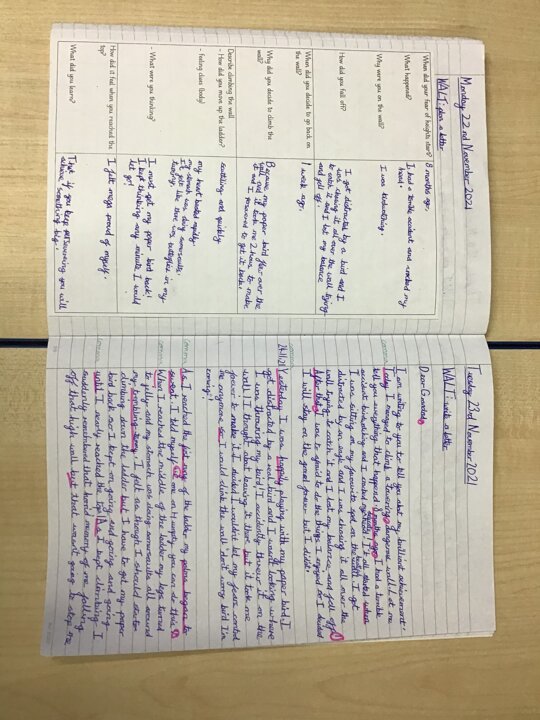 Monday 22nd November 2021
WALT: plan a letter.
When did your fear of heights start? 8 months ago.
What happened? I had a terrible accident and cracked my head.
Why were you on the wall? I was birdwatching.
How did you fall off? I got distracted by a bird and I was chasing it all over the wall trying to catch it and I lost my balance and fell off.
When did you decide to go back on the wall? 1 week ago.
Why did you decide to climb the wall? Because my paper bird flew over the wall and it took me 2 hours to make it and I was forward to get it back!
Describe climbing the wall
- How did you move up the ladder? scuttling and quickly
- feeling clues (body) my heart beated rapidly. my stomach was doing somersaults. It felt like there was butterflies in my
- What were you thinking? I must get my paper bird back! I kept thinking any minute I would let go!
How did it feel when you reached the top? I felt mega proud of myself.
What did you learn? That if you keep persevering you will achieve something big!
Tuesday 23rd November 2021
WALT: write a letter
Dear Grandad,
I am writing to you to tell you about my brilliant achievement!
Today, I managed to climb a towering, dangerous wall. Let me
tell you everything that happened. 8 months ago, I had a terrible
accident birdwatching and I cracked my head. It all started when
I was sitting in my favourite spot on the wall. I got
distracted by an eagle and I was chasing it all over the
wall trying to catch it and I lost my balance and fell off!
After that, I was to afraid to do the things I enjoyed for I decided
I will stay on the good flower but I didn't!
24/11/21 Yesterday I was happily playing with my paper bird. I
got distracted by a real bird and I wasn't looking where
I was throwing my bird! I accidently threw it on the
wall! I thought about leaving it there but it took me
forever to make it. I decided I wouldn't let my fears control
me anymore so I would climb the wall "don't worry bird I'm
coming!"
As I reached the first rung of the ladder my palms began to
sweat. I told myself, "Come on Humpty you can do this."
When I reached the middle of the ladder my legs turned
to jelly and my stomach was doing somersaults all around
my trembling body. I felt as though I should start
climbing down the ladder but I have to get my paper
bird back now. I kept on going and going and going
until I nearly reached the top. As I was climbing I
suddenly remembered that horrid memory of me falling
off that high wall but that wasn't going to stop me